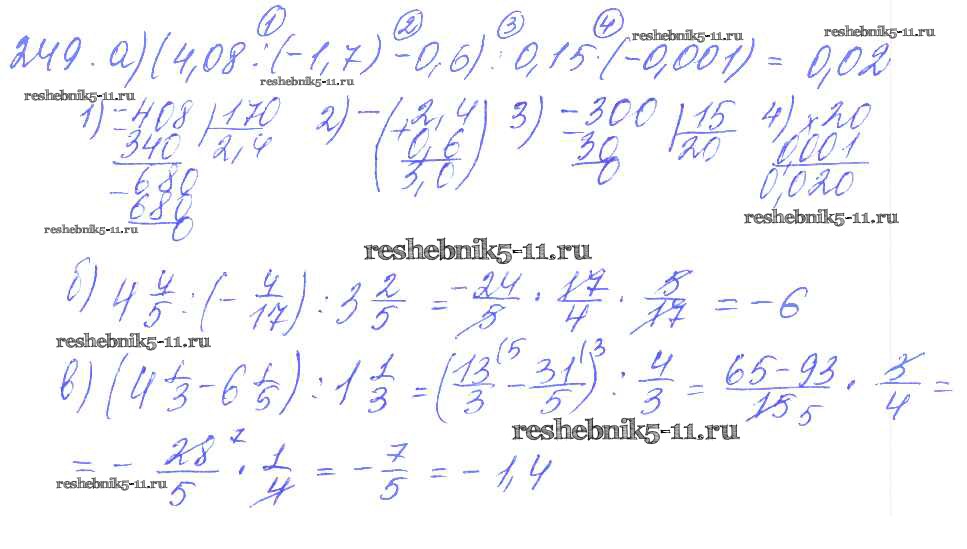 249. а) (4,08 : (-1,7) - 0,6) : 0,15 · (-0,001) = 0,02
① ② ③ ④
reshebnik5-11.ru reshebnik5-11.ru
reshebnik5-11.ru reshebnik5-11.ru
1) -408 | 170 2) -(+2,4 3) -300 | 15 4) × 20
340 2,4 0,6) 30 20 0,001
-680 3,0 0 0,020
680
0
reshebnik5-11.ru reshebnik5-11.ru
reshebnik5-11.ru
б) 4 4/5 : (- 4/17) : 3 2/5 = - 24/5 · 17/4 · 5/17 = -6
reshebnik5-11.ru
в) (4 1/3 - 6 1/5) : 1 1/3 = (13/3 (5 - 31/5 (3) : 4/3 = 65-93/15 5 · 3/4 =
reshebnik5-11.ru
= - 28 7/5 · 1/4 = - 7/5 = -1,4
reshebnik5-11.ru